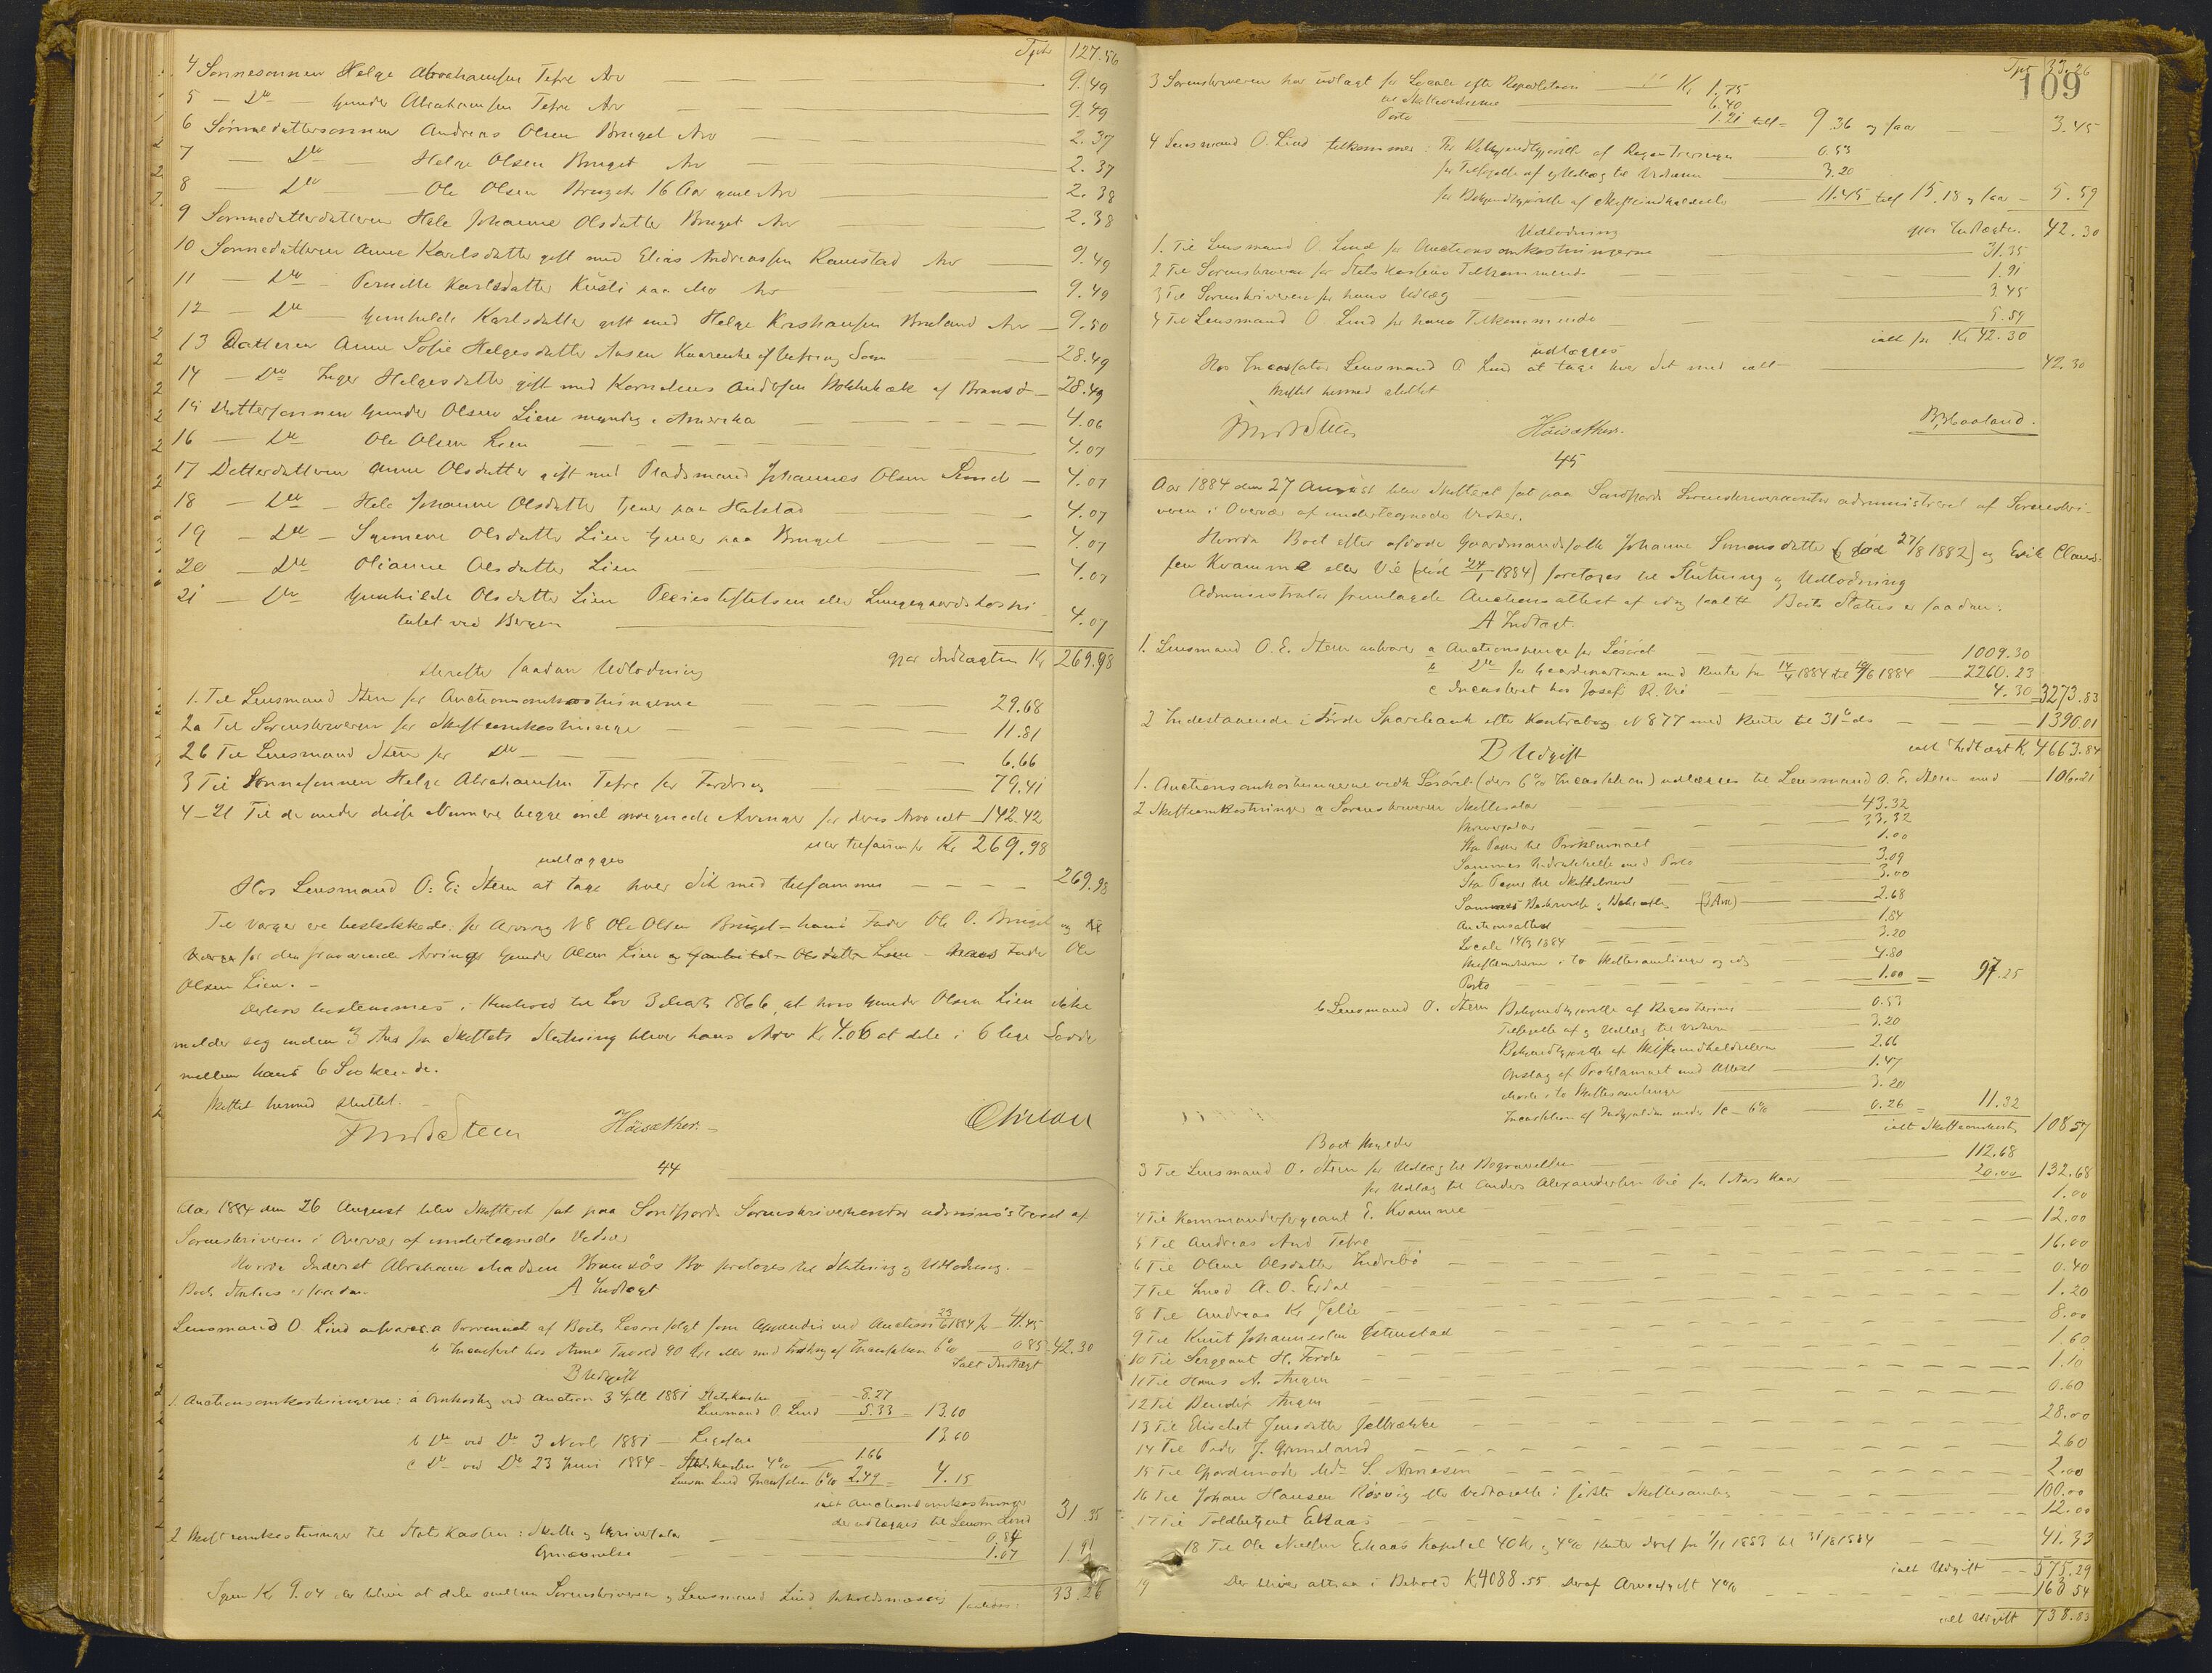 Tpt 127.56
4 Sønnesønnen Helge Abrahamsen Tefre Arv 9.49
5 — Do — Gunder Abrahamsen Tefre Arv 9.49
6 Sønnedattersønnen Andreas Olsen Bruget Arv 2.37
7 — Do — Helge Olsen Bruget Arv 2.37
8 — Do — Ole Olsen Bruget 16 Aar gml Arv 2.38
9 Sønnedatterdatteren Hele Johanne Olsdatter Bruget Arv 2.38
10 Sønnedatteren Anne Karlsdatter gift med Elias Andreassen Ramstad Arv 9.49
11 — Do — Pernille Karlsdatter paa Mo Arv 9.49
12 — Do — Gunhilde Karlsdatter gift med Helge Arv 9.50
13 Datteren Anne Sofie Helgesdatter Aasen 28.49
14 — Do Inger Helgesdatter gift med Kornelius Andersen 28.49
15 Dattersønnen Gunder Olsen Lien myndig i Amerika 4.06
16 — Do Ole Olsen Lien 4.07
17 Datterdatteren Anne Olsdatter gift med Pladsmand Johannes Olsen 4.07
18 — Do — Hele Johanne Olsdatter tjener paa Halstad 4.07
19 — Do — Olsdatter Lien tjener paa Bruget 4.07
20 — Do Olianne Olsdatter Lien 4.07
21 — Do Gunhilde Olsdatter Lien Pleiestiftelsen eller Lungegaardshospi-
talet ved Bergen 4.07
gjør Indtægten Kr 269.98
Derefter saadan Udlodning
1. Til Lensmand Steen for Auctionsomkostningerne 29.68
2a Til Sorenskriveren for Skifteomkostninger 11.81
2b Til Lensmand Steen for Do 6.66
3 Til Sønnesønnen Helge Abrahamsen Tefre for Fordring 79.41
4–21 Til de under disse Numere begge incl opregnede Arvinger for deres Arv ialt 142.42
eller tilsammen Kr 269.98
udlægges
Hos Lensmand O. E. Steen at tage hver Sit med tilsammen 269.98
Til Værger ere beskikkede: for Arving N 8 Ole Olsen Bruget – hans Fader Ole O. Bruget og
Værge for den fraværende Arving Gunder Olsen Lien – hans Fader Ole
Olsen Lien. –
Derhos bestemmes i Henhold til Lov 3 Marts 1866, at hvis Gunder Olsen Lien ikke
melder sig inden 3 Aar fra Skiftets Slutning bliver hans Arv Kr 4.06 at dele i 6 lige Lodder
mellem hans 6 Søskende.
Skiftet hermed sluttet.
Steen Høisæther.
44
Aar 1884 den 26 August blev Skifteret sat paa Søndfjords Sorenskriverkontor administreret af
Sorenskriveren i Overvær af undertegnede Vidner
Hvorda Inderst Abraham Madsen Bo foretoges til Slutning og Udlodning. –
Boets Status er saadan A Indtægt
Lensmand O. Lind ansvarer: a Provenuet af Boets Løsøre solgt ved Auction 23/6 1884 for 41.45
b Incasseret hos 90 Øre eller med Fradrag af Incassation 6% 0.85 = 42.30
Ialt Indtægt
B Udgift
1. Auctionsomkostningerne: a Omkostng ved Auction 3 1881 Statskassen 8.27
Lensmand O. Lind 5.33 = 13.60
b Do ved Do 3 Novb 1881 – Ligesaa 13.60
c Do ved Do 23 Juni 1884 – Statskassen 4% 1.66
Lensm Lind Incassation 6% 2.49 = 4.15
ialt Auctionsomkostninger
der udlægges til Lensm Lind 31.35
2 Skifteomkostninger til Statskassen: Skifte og Skriversalær 0.84
1.07 1.91
Igjen Kr 9.04 der bliver at dele mellem Sorenskriveren og Lensmand Lind forholdsmæssig saaledes: 33.26
Tpt 33.26
109
3 Sorenskriveren har udlagt for Locale efter Repartition Kr 1.75
til Skiftevidnerne 6.40
Porto 1.21 tils = 9.36 og faar 3.45
4 Lensmand O. Lind tilkommer: For Bekjendtgjørelse af Registreringen 0.53
for Tilsigelse af og Udlæg til Vidnerne 3.20
for Bekjendtgjørelse af Skifteindkaldelse 11.45 tils 15.18 og faar – 5.59
gjør Indtægten 42.30
Udlodning
1. Til Lensmand O. Lind for Auctionsomkostningerne 31.35
2 Til Sorenskriveren for Statskassens Tilkommende 1.91
3 Til Sorenskriveren for hans Udlæg 3.45
4 Til Lensmand O. Lind for hans Tilkommende 5.59
ialt for Kr 42.30
udlægges
Hos Incassator Lensmand O Lind at tage hver Sit med ialt 42.30
Skiftet hermed sluttet
Høisæther. Haaland.
45
Aar 1884 den 27 August blev Skifteret sat paa Søndfjords Sorenskriverkontor administreret af Sorenskri-
veren i Overvær af undertegnede Vidner.
Hvorda Boet efter afdøde Gaardmandsfolk Johanne Simonsdatter (død 27/8 1882) og Erik Claus-
sen Kvamme eller Vie (død 24/1 1884) foretoges til Slutning og Udlodning
Administrator fremlagde Auctionsattest af idag Boets Status er saadan:
A Indtægt.
1. Lensmand O. E. Steen ansvarer a Auctionspenge for Løsøret 1009.30
b Do for Gaardparterne med Renter fra 14/4 1884 til 1884 2260.23
c Incasseret hos Josef R. Vie 4.30 = 3273.83
2 Indestaaende i Førde Sparebank efter Kontrabog N 877 med Renter til 31te ds 1390.01
ialt Indtægt K. 4663.84
B Udgift
1. Auctionsomkostningerne vedk Løsøret (der 6% Incassation) udlægges til Lensmand O. E. Steen med 106.21
2 Skifteomkostninger a Sorenskriveren Skiftesalær 43.32
Skriversalær 33.32
Sta Papir til Proklamaet 1.00
Sammes Indrykkelse med Porto 3.09
Sta Papir til Skiftebrevet 3.00
Sammes Beskrivelse 2.68
Auctionsattest 1.84
Locale 14/3 1884 3.20
Skiftevidnerne i to Skiftesamlinger og idag 4.80
Porto 1.00 = 97.25
b Lensmand O. Steen Bekjendtgjørelse af Registrering 0.53
Tilsigelse af og Udlæg til Vidnerne 3.20
Bekjendtgjørelse af Skifteindkaldelsen 2.66
Opslag af Proklamaet med Attest 1.47
Møde i to Skiftesamlinger 3.20
Incassation af Indtægten under 1c – 6% 0.26 = 11.32
ialt Skifteomkostng 108.57
Boet skylder
3 Til Lensmand O. Steen for Udlæg til Begravelsen 112.68
for Udlæg til Anders Alexandersen Vie for 1 Aars Kaar 20.00 132.68
4 Til Kommandersergeant E. Kvamme 1.00
5 Til Andreas And Tefre 12.00
6 Til Oline Olsdatter Indrebø 16.00
7 Til A. O. Erdal 0.40
8 Til Andreas Kr. Jelle 1.20
9 Til Knut Johannessen 8.00
10 Til Sergeant H. Førde 1.60
11 Til Hans A. Angen 1.10
12 Til Bendix Angen 0.60
13 Til Elisebet Jensdatter 28.00
14 Til Peder J. Grimeland 2.60
15 Til Gjordemoder Md S. Arnesen 2.00
16 Til Johan Hansen Rørvig efter Vedtagelse i sidste Skiftesamling 100.00
17 Til Toldbetjent Ekaas 12.00
18 Til Ole Nielsen Ekaas Kapital 40 Kr. og 4% Renter deraf fra 1/11 1883 til 31/8 1884 41.33
ialt Udgift 575.29
19 Der bliver altsaa i Behold K 4088.55 Deraf Arveafgift 4% 163.54
ialt Udgift 738.83